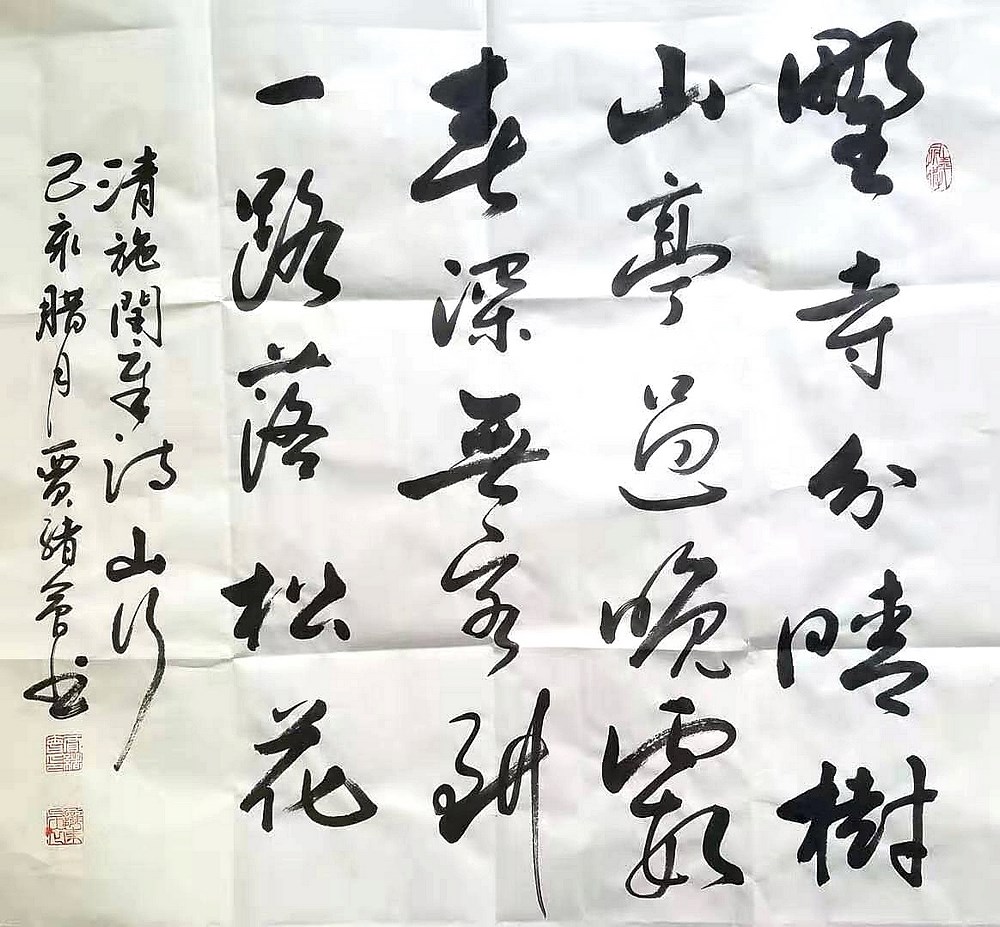 野寺分晴樹
山亭過晚霞
春深無客到
一路落松花
清施閏章詩山行
己亥腊月賈緒會书